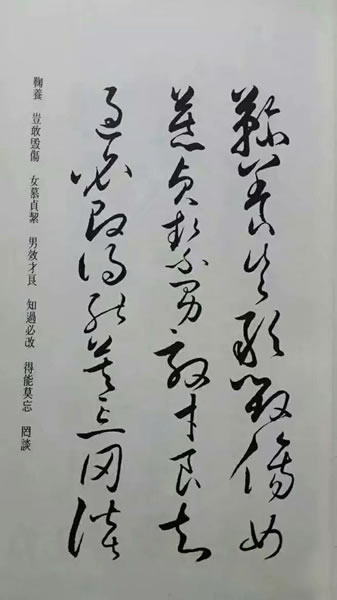 鞠養豈敢毀傷女
慕貞絜男效才良知
過必改得能莫忘罔談
鞠養 豈敢毀傷 女慕貞絜 男效才良 知過必改 得能莫忘 罔談